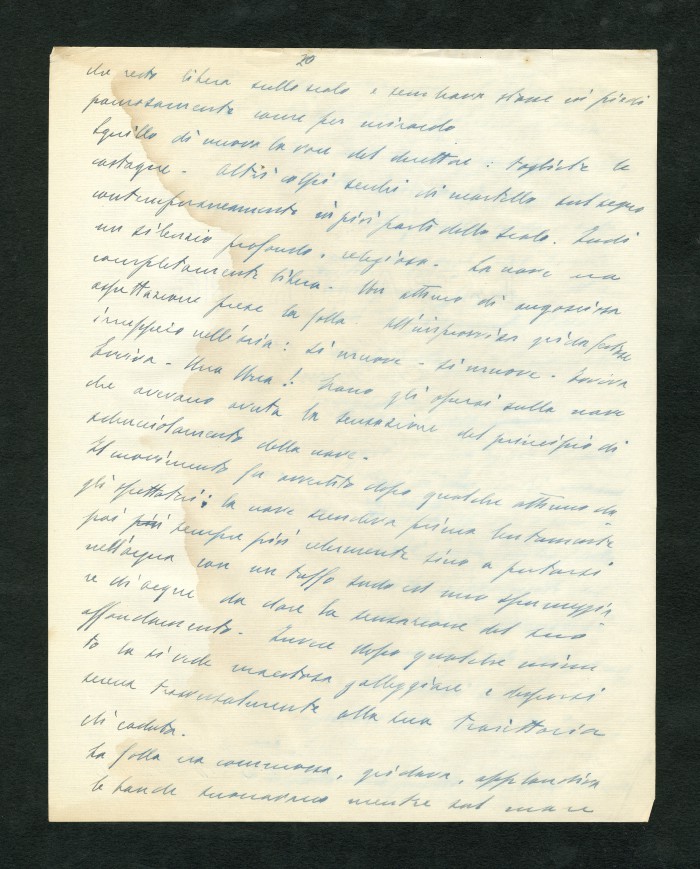 20
che resta libera sullo scalo e sembrava stesse in piedi
paurosamente come per miracolo
Squilla di nuovo la voce del direttore: tagliate le
castagne - Altri colpi secchi di martello sul legno
contemporaneamente in più parti dello scalo. Indi
un silenzio profondo, religioso. La nave era
completamente libera. Un attimo di angosciosa
aspettazione prese la folla. All'improvviso grida festose
irruppero nell'aria: si muove - si muove - Evviva
Evviva - Urra Urra!! Erano gli operai sulla nave
che avevano avuta la sensazione del principio di
sdrucciolamento della nave.
Il movimento fu avvertito dopo qualche attimo da
gli spettatori: la nave scendeva prima lentamente
poi più sempre più celermente sino a portarsi
nell'acqua con un tuffo sordo ed uno spumeggia
re di acque da dare la sensazione del suo
affondamento. Invece dopo qualche minu
to la si vede maestosa galleggiare e disporsi
serena trasversalmente alla sua traiettoria
di caduta.
La folla era commossa, gridava, applaudiva
le bande suonavano mentre sul mare